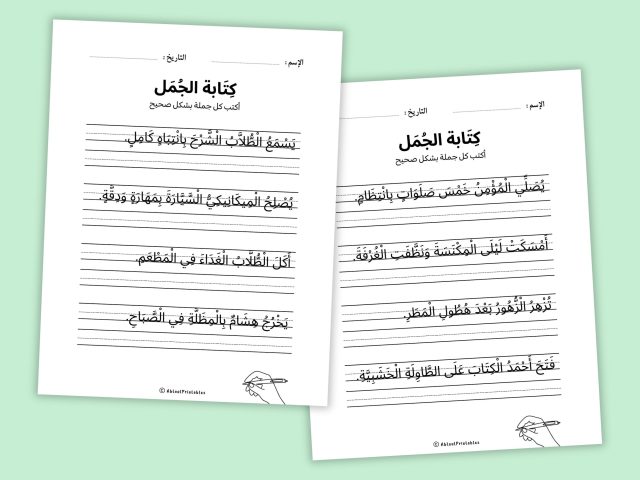 الإسم :
التاريخ :
كِتَابة الجُمَل
أكتب كل جملة بشكل صحيح
يَسْمَعُ الْطُّلاَّبُ الْشَّرْحَ بِانْتِبَاهٍ كَامِلٍ.
يُصْلِحُ الْمِيكَانِيكِيُّ الْسَّيَّارَةَ بِمَهَارَةٍ وَدِقَّةٍ.
أَكَلَ الْطُّلَّابُ الْغَدَاءَ فِي الْمَطْعَمِ.
يَخْرُجُ هِشَامٌ بِالْمِظَلَّةِ فِي الْصَّبَاحِ.
© AbleetPrintables
الإسم :
التاريخ :
كِتَابة الجُمَل
أكتب كل جملة بشكل صحيح
يُصَلِّي الْمُؤْمِنُ خَمْسَ صَلَوَاتٍ بِانْتِظَامٍ.
أَمْسَكَتْ لَيْلَى الْمِكْنَسَةَ وَنَظَّفَتِ الْغُرْفَةَ.
تُزْهِرُ الْزُّهُورُ بَعْدَ هُطُولِ الْمَطَرِ.
فَتَحَ أَحْمَدُ الْكِتَابَ عَلَى الطَّاوِلَةِ الْخَشَبِيَّةِ.
© AbleetPrintables